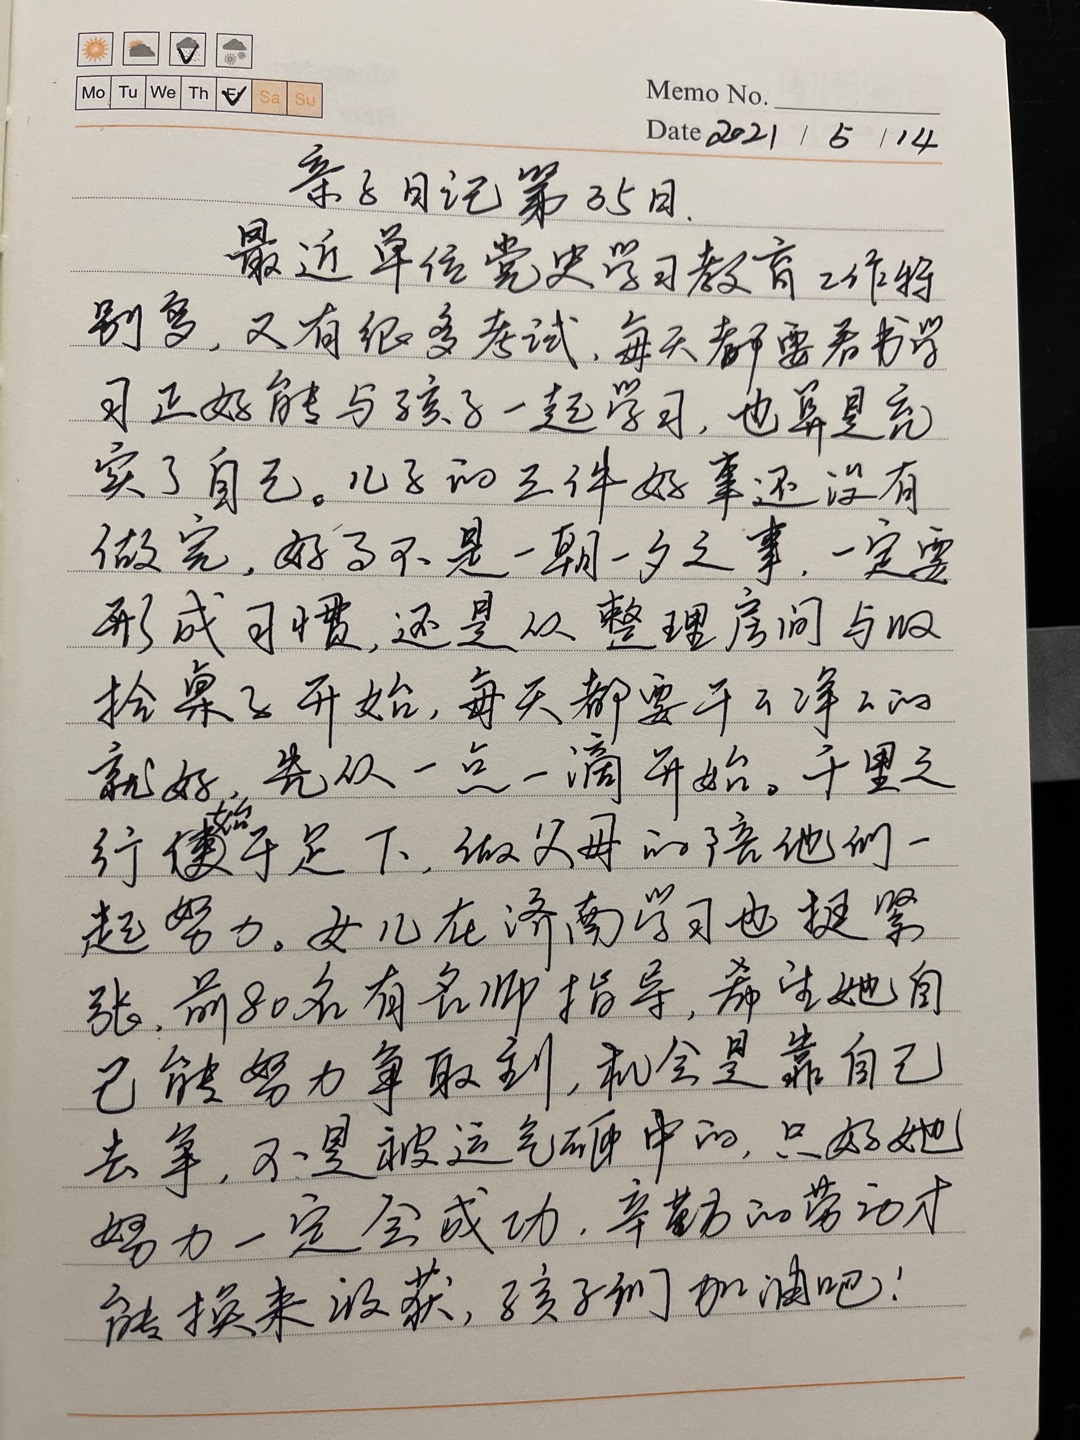 Mo Tu We Th Fr Sa Su
Memo No.
Date 2021 / 5 / 14
亲子日记第35日.
最近单位党史学习教育工作特
别多,又有很多考试,每天都要看书学
习正好能与孩子一起学习,也算是充
实了自己。儿子的三件好事还没有
做完,好习不是一朝一夕之事,一定要
形成习惯,还是从整理房间与收
拾桌子开始,每天都要干干净净的
就好,先从一点一滴开始。千里之
行始于足下,做父母的陪他们一
起努力。女儿在济南学习也挺紧
张,前80名有名师指导,希望她自
己能努力争取到,机会是靠自己
去争,不是被运气砸中的,只好她
努力一定会成功,辛勤的劳动才
能换来收获,孩子们加油吧!